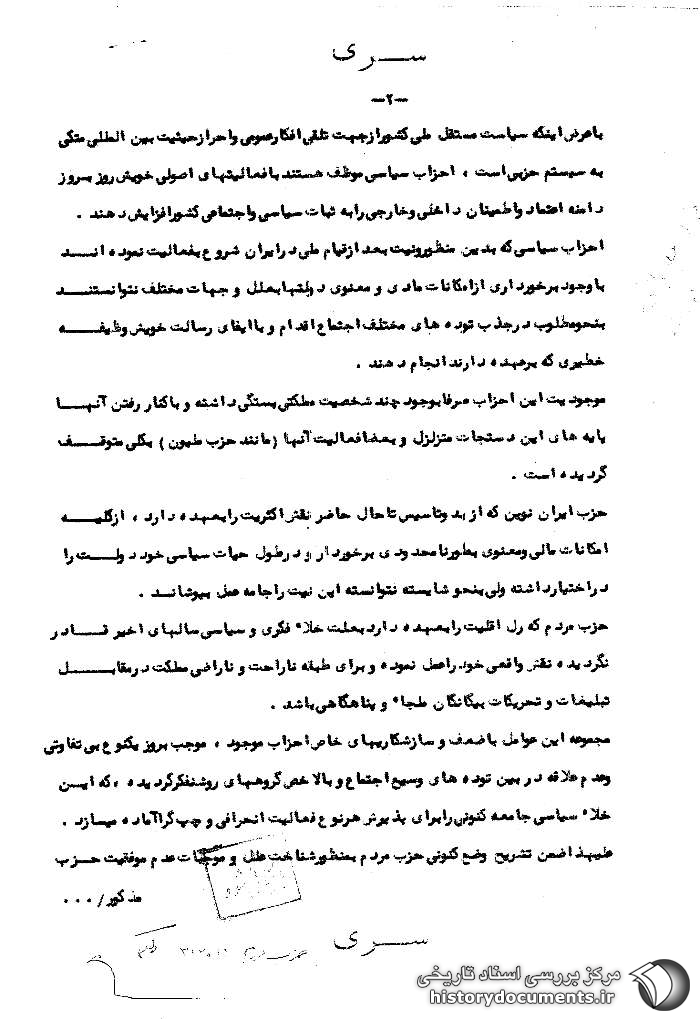 سری
-۲-
با عرض اینکه سیاست مستقل ملی کشور از جهت تلقی افکار عمومی و احراز حیثیت بین المللی متکی
به سیستم حزبی است ، احزاب سیاسی موظف هستند با فعالیتهای اصولی خویش روز بروز
دامنه اعتماد و اطمینان داخلی و خارجی را به ثبات سیاسی و اجتماعی کشور افزایش دهند .
احزاب سیاسی که بدین منظور و نیت بعد از قیام ملی در ایران شروع بفعالیت نموده انــد
با وجود برخورداری از امکانات مادی و معنوی دولتها بعلل و جهات مختلف نتوانستنــد
بنحو مطلوب در جذب توده های مختلف اجتماع اقدام و با ایفای رسالت خویش وظیفــه
خطیری که برعهده دارند انجام دهند .
موجودیت این احزاب صرفا بوجود چند شخصیت مملکتی بستگی داشته و با کنار رفتن آنهــا
پایه های این دستجات متزلزل و بعضا فعالیت آنها ( مانند حزب ملیون ) بکلی متوقــف
گردیده است .
حزب ایران نوین که از بدو تاسیس تا حال حاضر نقش اکثریت را بعهده دارد ، از کلیــه
امکانات مالی و معنوی بطور نامحدودی برخوردار و در طول حیات سیاسی خود دولــت را
در اختیار داشته ولی بنحو شایسته نتوانسته این نیت را جامه عمل بپوشانــد .
حزب مردم که رل اقلیت را بعهده دارد بعلت خلاء فکری و سیاسی سالهای اخیر قــادر
نگردیده نقش واقعی خود را عمل نموده و برای طبقه ناراحت و ناراضی مملکت در مقابــل
تبلیغات و تحریکات بیگانگان ملجاء و پناهگاهی باشد .
مجموعه این عوامل با ضعف و سازشکاریهای خاص احزاب موجود ، موجب بروز یکنوع بی تفاوتی
و عدم علاقه در بین توده های وسیع اجتماع و بالاخص گروههای روشنفکر گردیده ، که ایــن
خلاء سیاسی جامعه کنونی را برای پذیرش هر نوع فعالیت انحرافی و چپ گرا آماده میسازد .
علیهذا ضمن تشریح وضع کنونی حزب مردم بمنظور شناخت علل و موجبات عدم موفقیت حــزب
مذکور / ۰۰۰
سری
مرکز بررسی اسناد تاریخی
historydocuments.ir